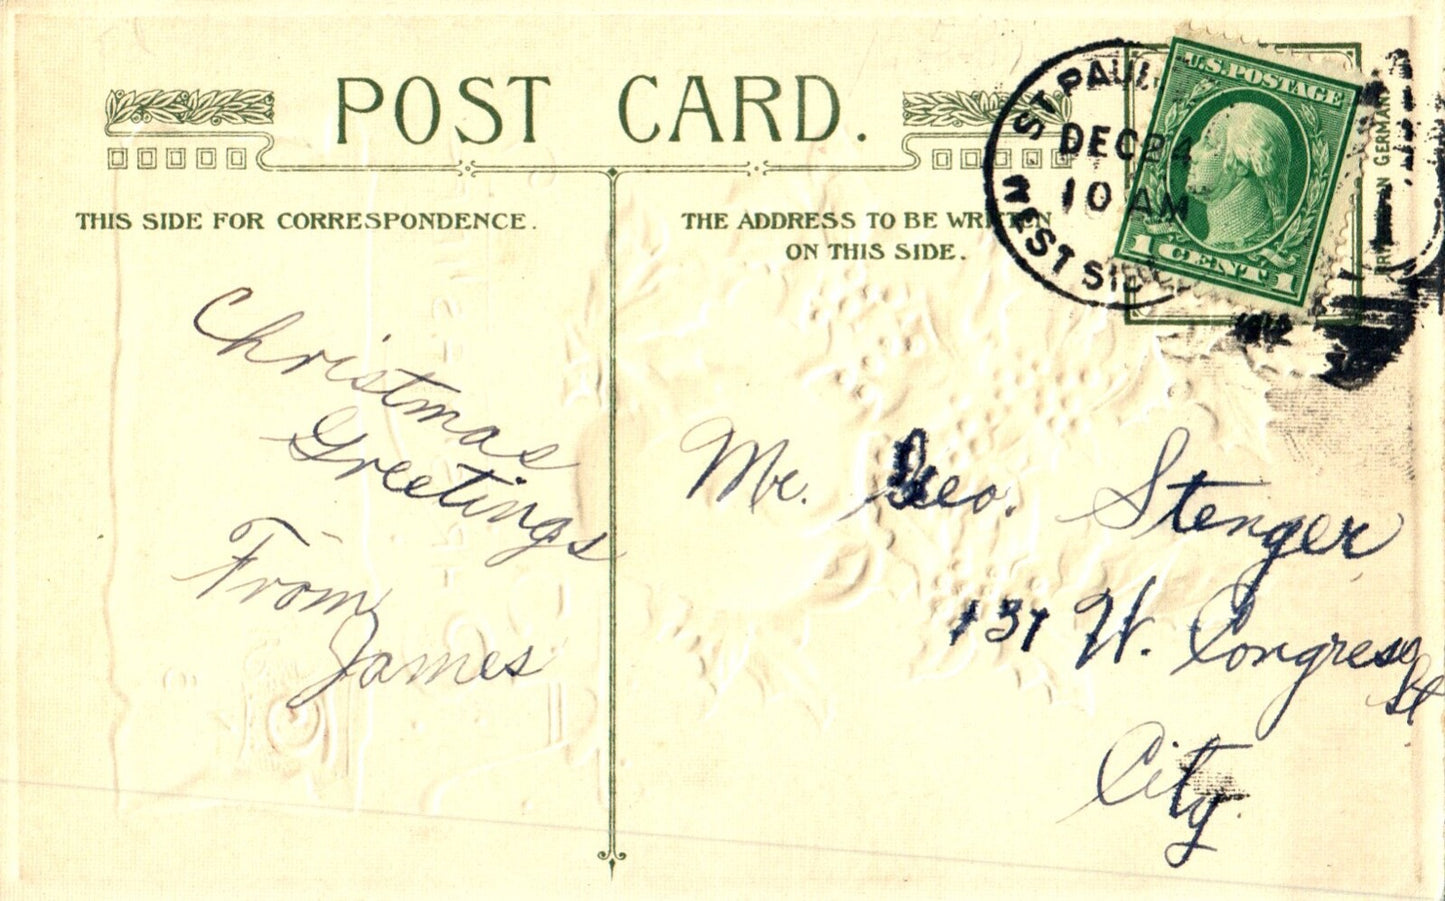 POST CARD.
THIS SIDE FOR CORRESPONDENCE.
THE ADDRESS TO BE WRITTEN
ON THIS SIDE.
ST PAUL
DEC 24
10 AM
1912
WEST SIDE
U.S. POSTAGE
1 CENT 1
IN GERMANY
Christmas
Greetings
From
James
Mr. Geo. Stenger
137 W. Congress
St
City